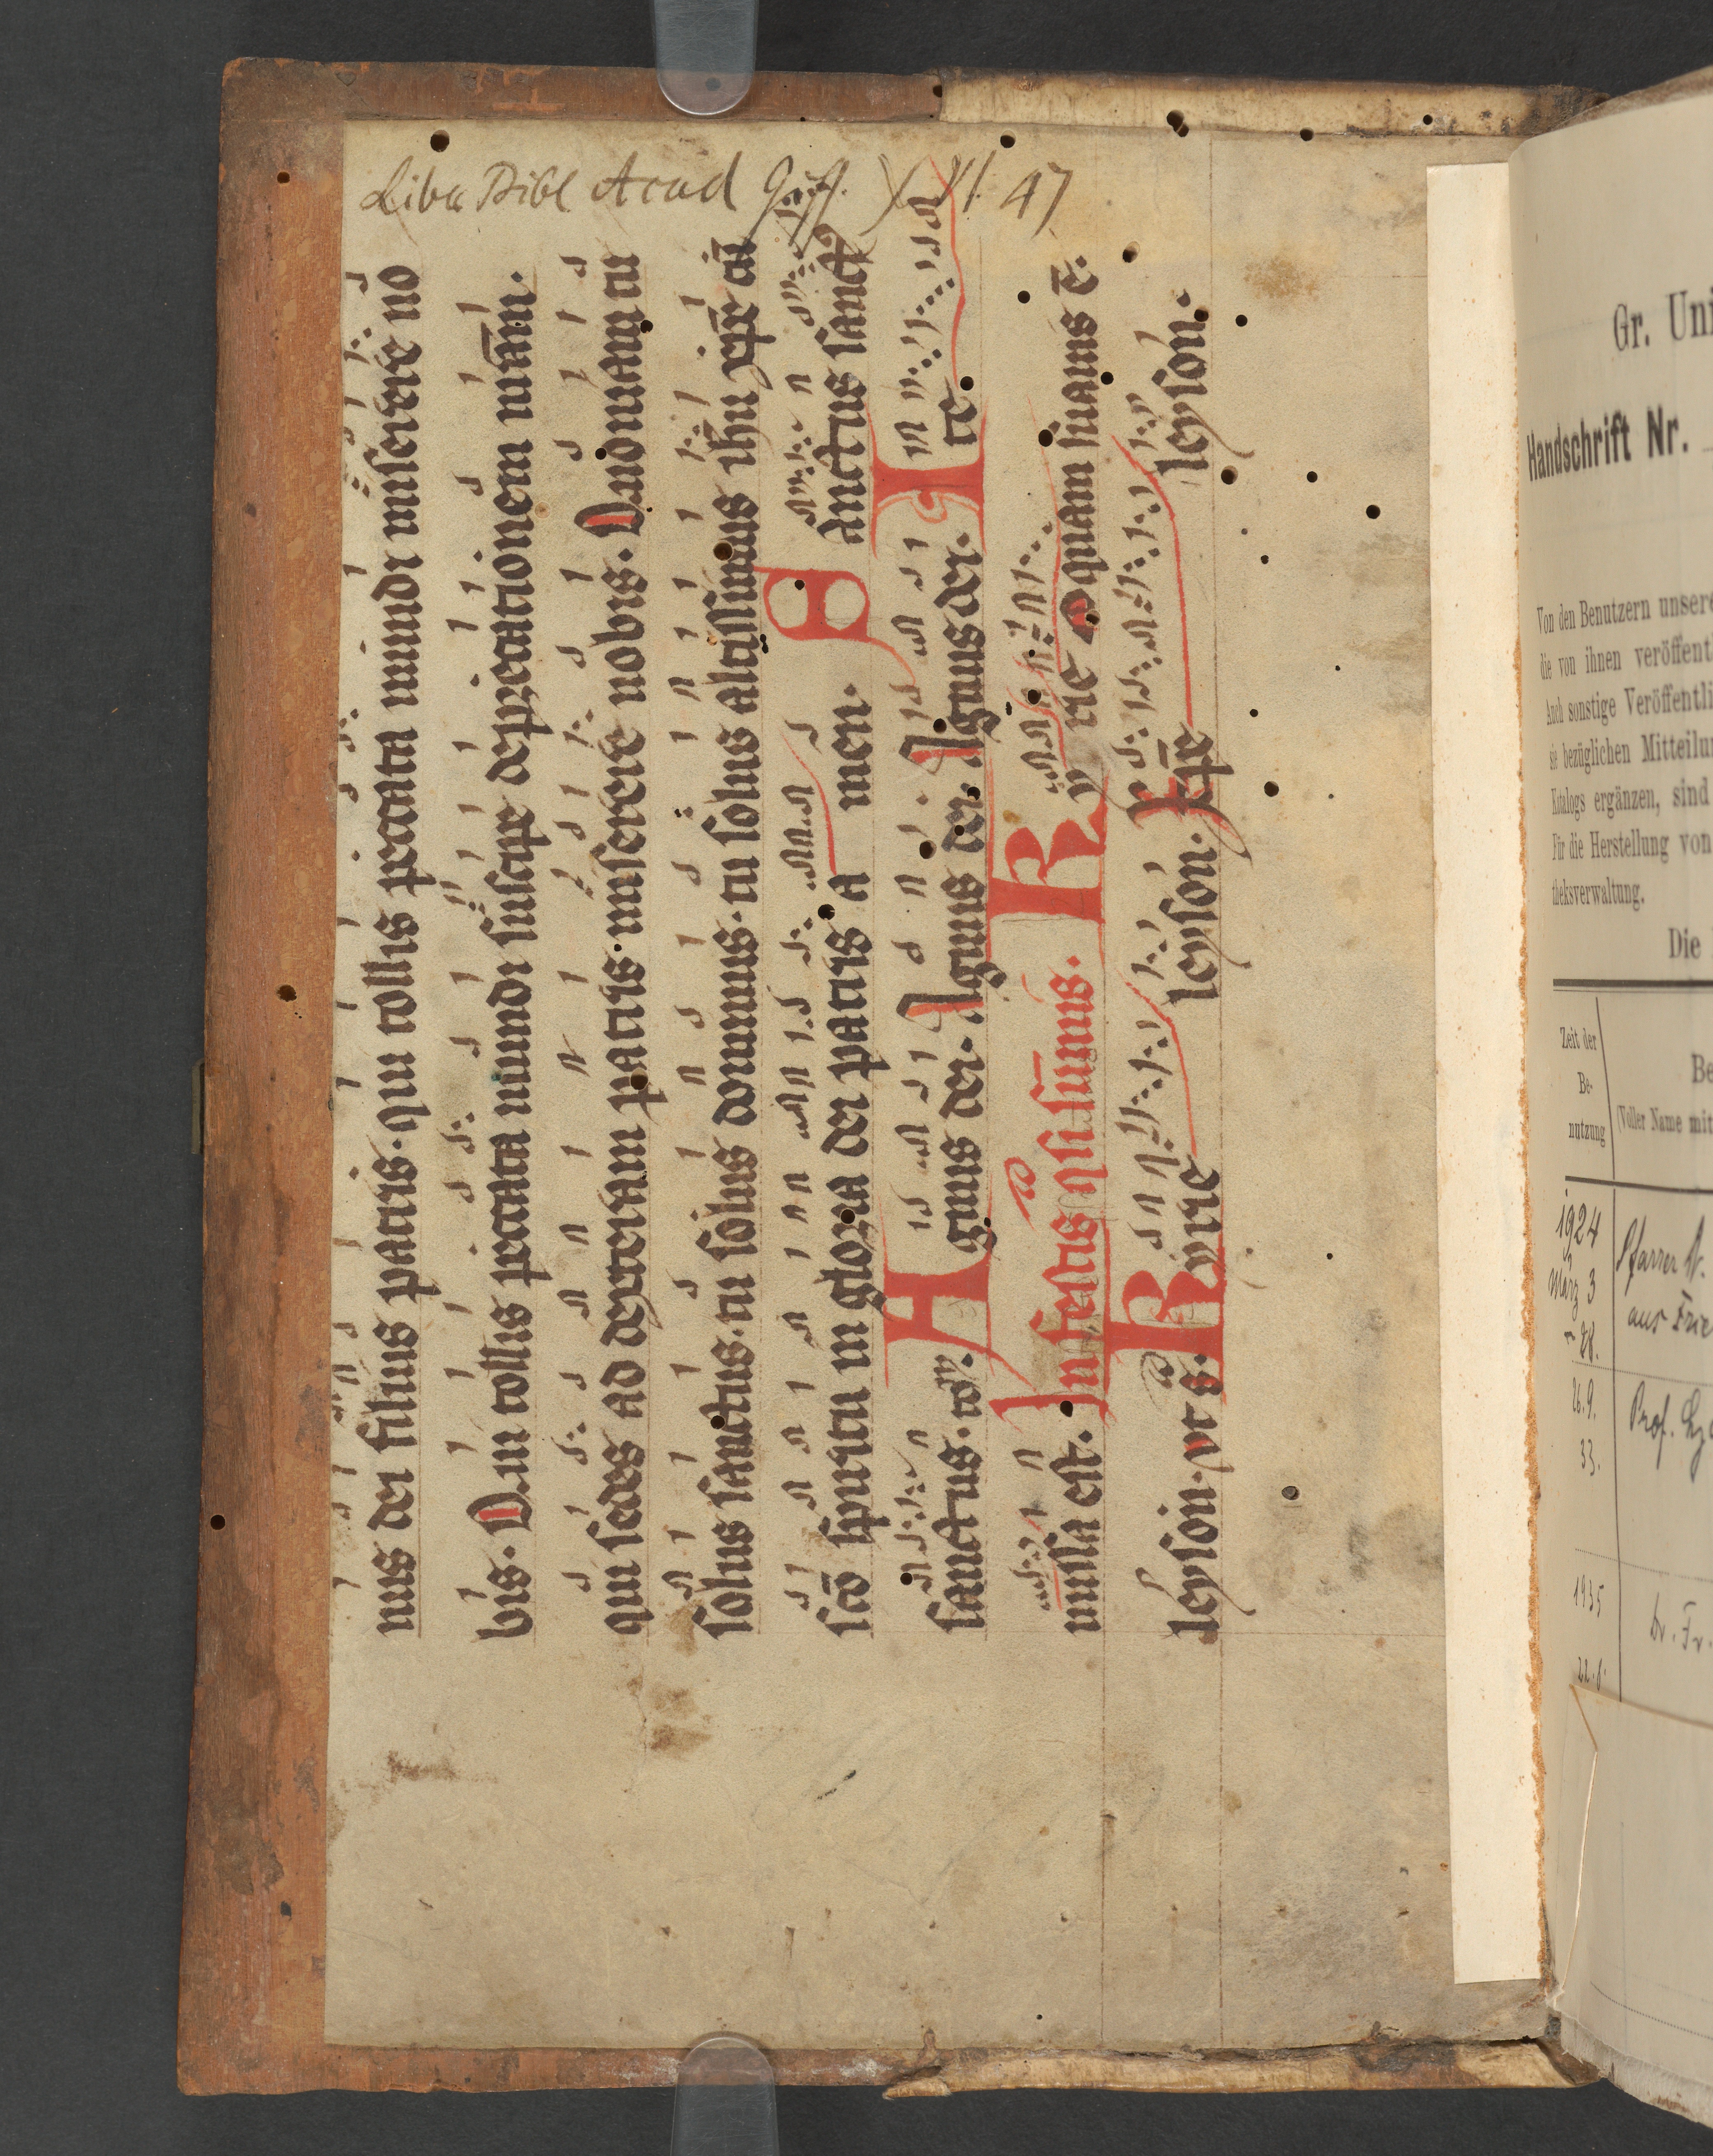 Liber Bibl Acad Giss. XXVI 47
nus dei filius patris. qui tollis peccata mundi miserere no
bis. Qui tollis peccata mundi suscipe deprecationem nr̄am.
qui sedes ad dexteram patris. miserere nobis. Qm̄ tu
solus sanctus. tu solus dominus. tu solus altissimus ihu xp̄e cū
scō spiritu in gloria dei patris a men. S anctus sanct9
sanctus. A gnus dei. Agnus dei. Agnus dei. I te
missa est. In festis summis. K yrie quam suavis ē.
leyson. ut s. Kyrie leyson. Xp̄e leyson.
Gr. Uni
Handschrift Nr.
Von den Benutzern unsere
die von ihnen veröffentl
Auch sonstige Veröffentli
sie bezüglichen Mitteilun
Katalogs ergänzen, sind
Für die Herstellung von
theksverwaltung.
Die
Zeit der
Be-
nutzung
Be
(Voller Name mit
1924
März 3
- 28.
Pfarrer
aus Frie
26.9.
33.
Prof.
1935
22.
Dr. Fr.